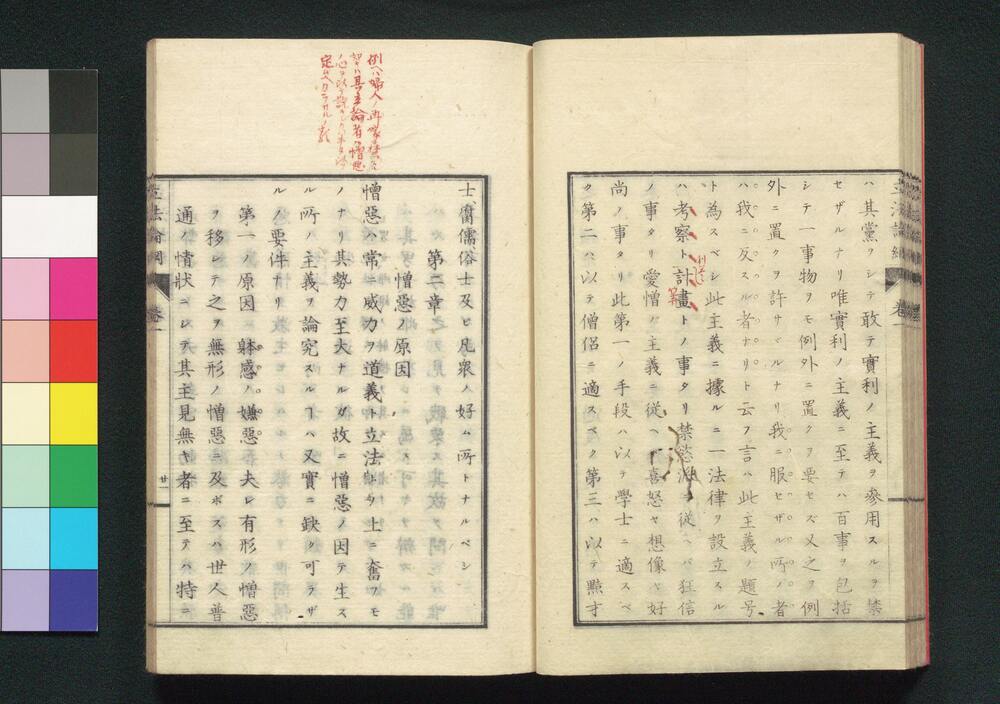 ハ其黨ヲシテ敢テ實利ノ主義ヲ參用スルヲ禁
セザルナリ唯實利ノ主義ニ至テハ百事ヲ包括
シテ一事物ヲモ例外ニ置クヲ要セズ又之ヲ例
外ニ置クヲ許サヾルナリ我ニ服セザル所ノ者
ハ我ニ反スル者ナリト云フ言ハ此主義ノ題号
ト為スベシ此主義ニ據ルニ一法律ヲ設立スル
ハ考察ト計畫トノ事タリ禁慾派ニ從ヘバ狂信
ノ事タリ愛憎ノ主義ニ從ヘバ喜怒ヤ想像ヤ好
尚ノ事タリ此第一ノ手段ハ以テ學士ニ適スベ
ク第二ハ以テ僧侶ニ適スベク第三ハ以テ黠才
算
卷一
例ヘハ婦人ノ再
其主論者ノ憎惡
士腐儒俗士及ビ凡衆ノ好ム所トナルベシ
第二章
憎惡ノ原因
憎惡ハ常ニ威力ヲ道義ト立法トノ上ニ奮フモ
ノナリ其勢力至大ナルガ故ニ憎惡ノ因テ生ス
ル所ノ主義ヲ論究スルヿハ又實ニ缺ク可ラザ
ルノ要件ナリ
第一ノ原因 躰感ノ嫌惡 夫レ有形ノ憎惡
ヲ移シテ之ヲ無形ノ憎惡ニ及ボスハ世人普
通ノ情狀ニシテ其主見無キ者ニ至テハ特ニ
立法論綱
卷一
廿一